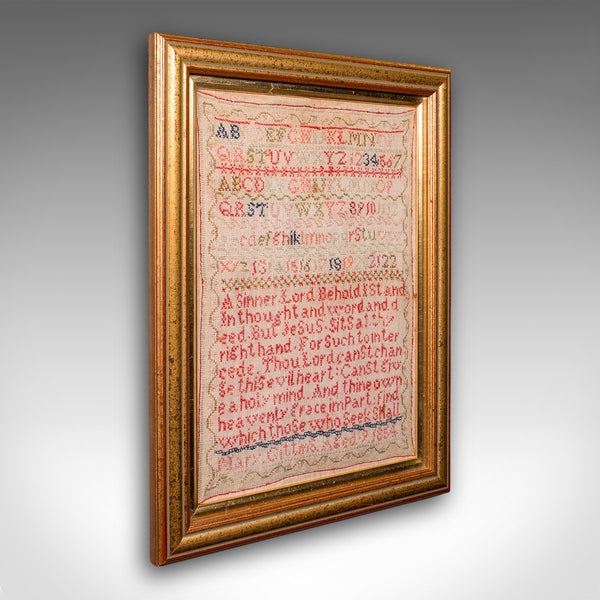 AB EFGH KLMN
QRSTUVWXYZ1234567
ABCD GHI KLMNOP
QRSTUVWXYZ8910
cdefghiklmnopqrstu
xyz131415161718192122
A Sinner Lord Behold I Stand
In thought and word and d
eed. But JeSuS. SitS at thy
right hand. For Such to inter
cede. Thou Lord canSt chan
ge thiS evil heart: CanSt giv
e a holy mind. And thine own
heavenly grace imPart. find
which thoSe who Seek Shall
Mary. Aged. 9. 1884